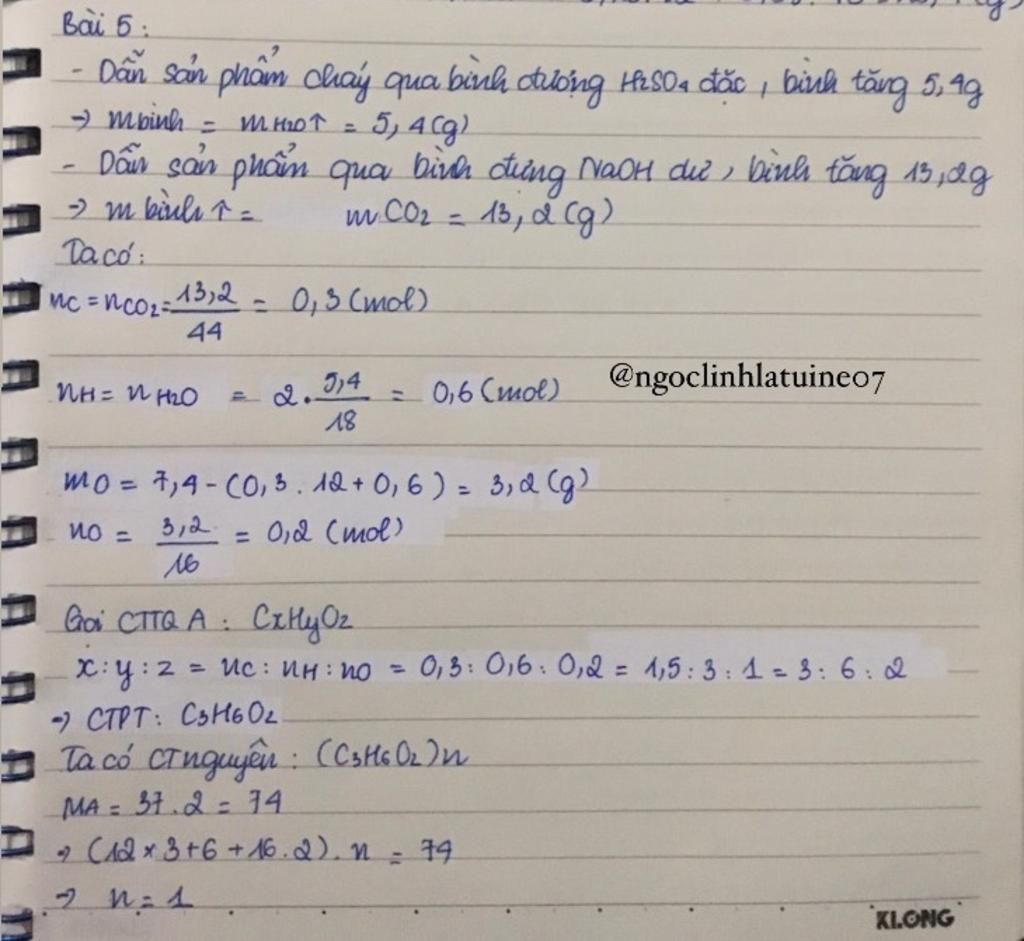 Bài 5:
- Dẫn sản phẩm cháy qua bình đượng H2SO4 đặc, bình tăng 5,4g
→ mbình = mH2O↑ = 5,4(g)
- Dẫn sản phẩm qua bình đựng NaOH dư, bình tăng 13,2g
→ m bình↑ = mCO2 = 13,2(g)
Ta có:
nC = nCO2 = 13,2/44 = 0,3(mol)
nH = nH2O = 2.5,4/18 = 0,6(mol)
@ngoclinhlatuine07
mO = 7,4-(0,3.12+0,6) = 3,2(g)
nO = 3,2/16 = 0,2 (mol)
Gọi CTTQ A: CxHyO2
x:y:z = nC:nH:nO = 0,3:0,6:0,2 = 1,5:3:1 = 3:6:2
→ CTPT: C3H6O2
Ta có CTnguyên: (C3H6O2)n
MA = 37.2 = 74
→ (12×3+6+16.2).n = 74
→ n = 1
KLONG